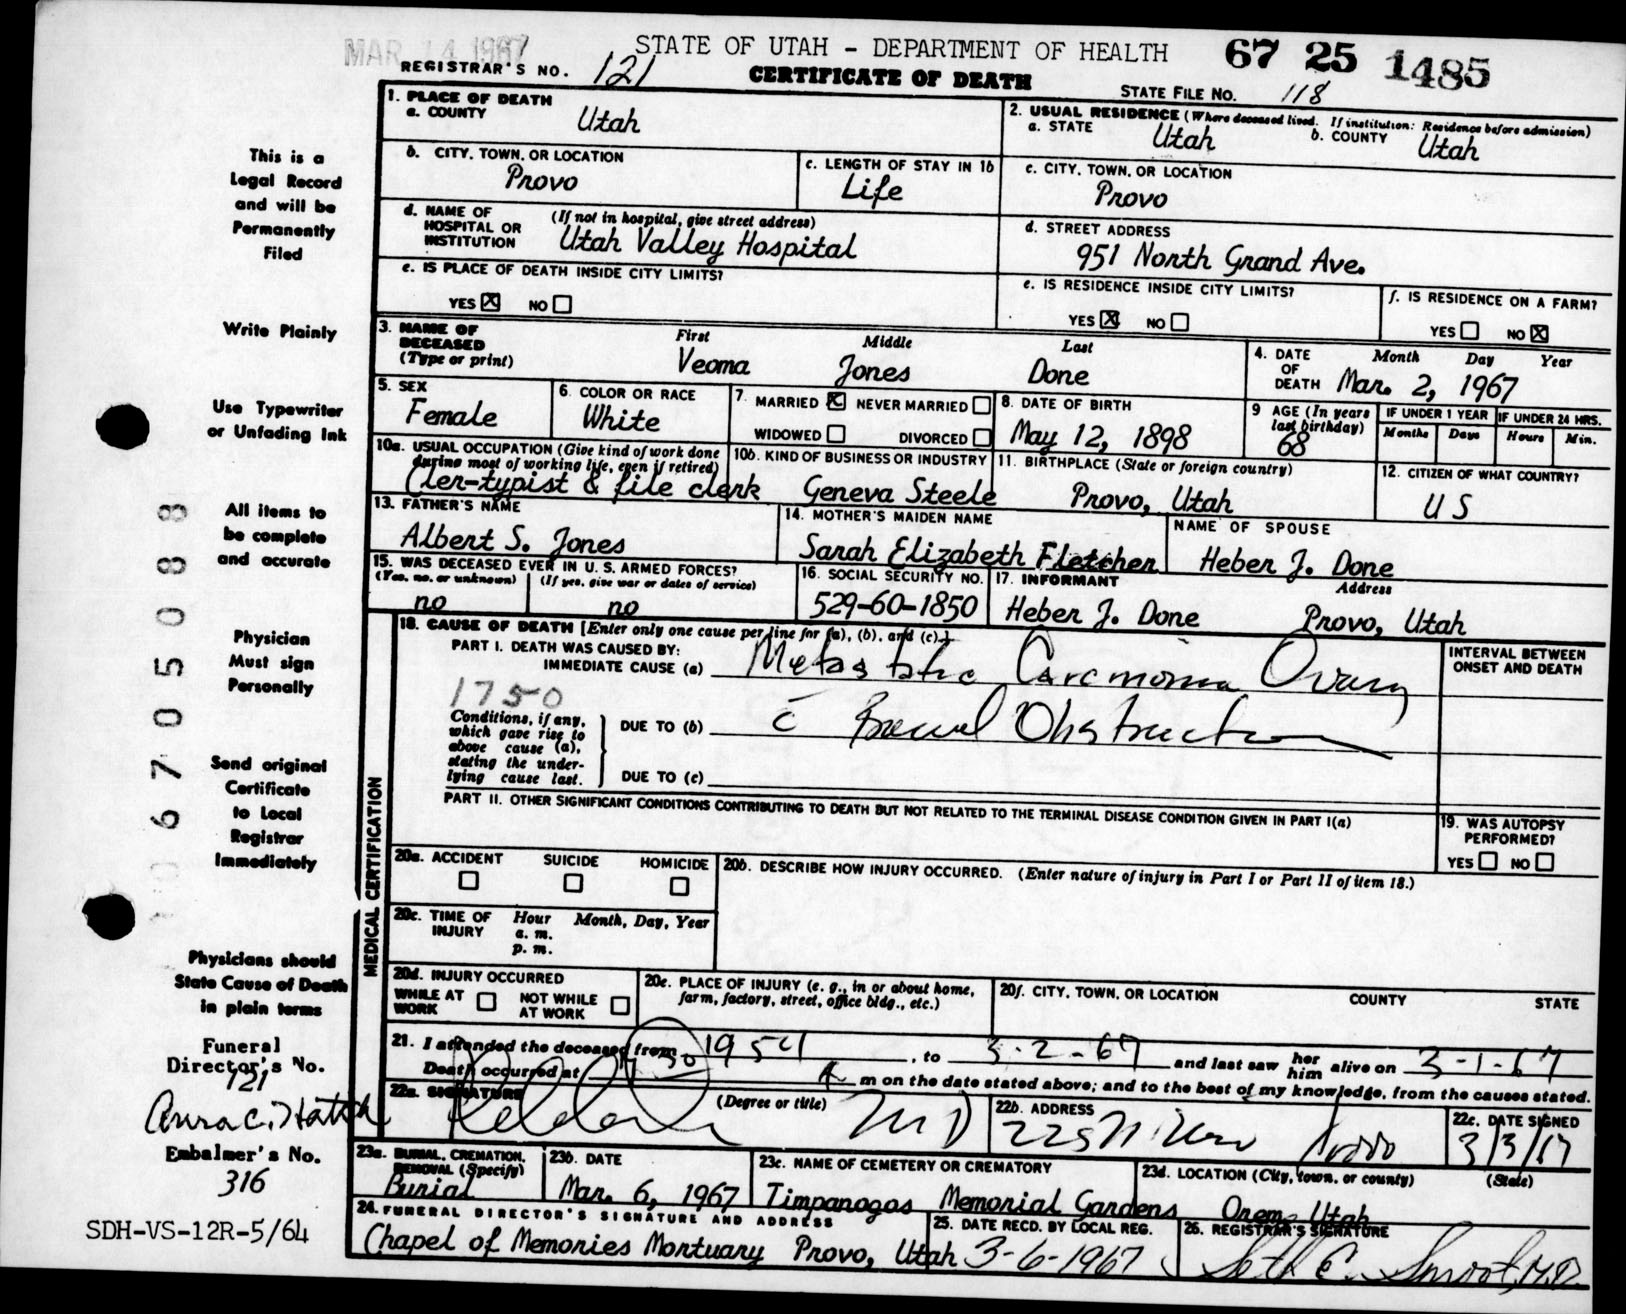 MAR 14 1967
STATE OF UTAH - DEPARTMENT OF HEALTH
67 25 1485
REGISTRAR'S NO. 121
CERTIFICATE OF DEATH
STATE FILE NO. 118
This is a
Legal Record
and will be
Permanently
Filed
Write Plainly
Use Typewriter
or Unfading Ink
All items to
be complete
and accurate
Physician
Must sign
Personally
Send original
Certificate
to Local
Registrar
Immediately
Physicians should
State Cause of Death
in plain terms
Funeral
Director's No.
121
Embalmer's No.
316
SDH-VS-12R-5/64
6705088
1. PLACE OF DEATH
a. COUNTY Utah
2. USUAL RESIDENCE (Where deceased lived. If institution: Residence before admission)
a. STATE Utah b. COUNTY Utah
b. CITY, TOWN, OR LOCATION
Provo
c. LENGTH OF STAY IN 1b
Life
c. CITY, TOWN, OR LOCATION
Provo
d. NAME OF HOSPITAL OR INSTITUTION (If not in hospital, give street address)
Utah Valley Hospital
d. STREET ADDRESS
951 North Grand Ave.
e. IS PLACE OF DEATH INSIDE CITY LIMITS?
YES ☒ NO ☐
e. IS RESIDENCE INSIDE CITY LIMITS?
YES ☒ NO ☐
f. IS RESIDENCE ON A FARM?
YES ☐ NO ☒
3. NAME OF DECEASED (Type or print)
First Middle Last
Veoma Jones Done
4. DATE OF DEATH Month Day Year
Mar. 2, 1967
5. SEX
Female
6. COLOR OR RACE
White
7. MARRIED ☒ NEVER MARRIED ☐
WIDOWED ☐ DIVORCED ☐
8. DATE OF BIRTH
May 12, 1898
9 AGE (In years last birthday)
68
IF UNDER 1 YEAR
Months Days
IF UNDER 24 HRS.
Hours Min.
10a. USUAL OCCUPATION (Give kind of work done during most of working life, even if retired)
Cler-typist & file clerk
10b. KIND OF BUSINESS OR INDUSTRY
Geneva Steele
11. BIRTHPLACE (State or foreign country)
Provo, Utah
12. CITIZEN OF WHAT COUNTRY?
U S
13. FATHER'S NAME
Albert S. Jones
14. MOTHER'S MAIDEN NAME
Sarah Elizabeth Fletcher
NAME OF SPOUSE
Heber J. Done
15. WAS DECEASED EVER IN U. S. ARMED FORCES?
(Yes, no, or unknown) (If yes, give war or dates of service)
no no
16. SOCIAL SECURITY NO.
529-60-1850
17. INFORMANT Address
Heber J. Done Provo, Utah
18. CAUSE OF DEATH [Enter only one cause per line for (a), (b), and (c).]
PART I. DEATH WAS CAUSED BY:
IMMEDIATE CAUSE (a) Metastatic Carcinoma Ovary
1750
Conditions, if any, which gave rise to above cause (a), stating the underlying cause last.
DUE TO (b) c̄ Bowel Obstruction
DUE TO (c)
INTERVAL BETWEEN ONSET AND DEATH
PART II. OTHER SIGNIFICANT CONDITIONS CONTRIBUTING TO DEATH BUT NOT RELATED TO THE TERMINAL DISEASE CONDITION GIVEN IN PART I(a)
19. WAS AUTOPSY PERFORMED?
YES ☐ NO ☐
MEDICAL CERTIFICATION
20a. ACCIDENT SUICIDE HOMICIDE
☐ ☐ ☐
20b. DESCRIBE HOW INJURY OCCURRED. (Enter nature of injury in Part I or Part II of item 18.)
20c. TIME OF INJURY Hour Month, Day, Year
a. m.
p. m.
20d. INJURY OCCURRED
WHILE AT WORK ☐ NOT WHILE AT WORK ☐
20e. PLACE OF INJURY (e. g., in or about home, farm, factory, street, office bldg., etc.)
20f. CITY, TOWN, OR LOCATION COUNTY STATE
21. I attended the deceased from 1954, to 3-2-67 and last saw her him alive on 3-1-67
Death occurred at 30 A m on the date stated above; and to the best of my knowledge, from the causes stated.
22a. SIGNATURE (Degree or title)
MD
22b. ADDRESS
Provo
22c. DATE SIGNED
3/3/67
23a. BURIAL, CREMATION, REMOVAL (Specify)
Burial
23b. DATE
Mar. 6, 1967
23c. NAME OF CEMETERY OR CREMATORY
Timpanogos Memorial Gardens
23d. LOCATION (City, town, or county) (State)
Orem, Utah
24. FUNERAL DIRECTOR'S SIGNATURE AND ADDRESS
Chapel of Memories Mortuary Provo, Utah
25. DATE RECD. BY LOCAL REG.
3-6-1967
26. REGISTRAR'S SIGNATURE
Seth E. Smoot, M.D.